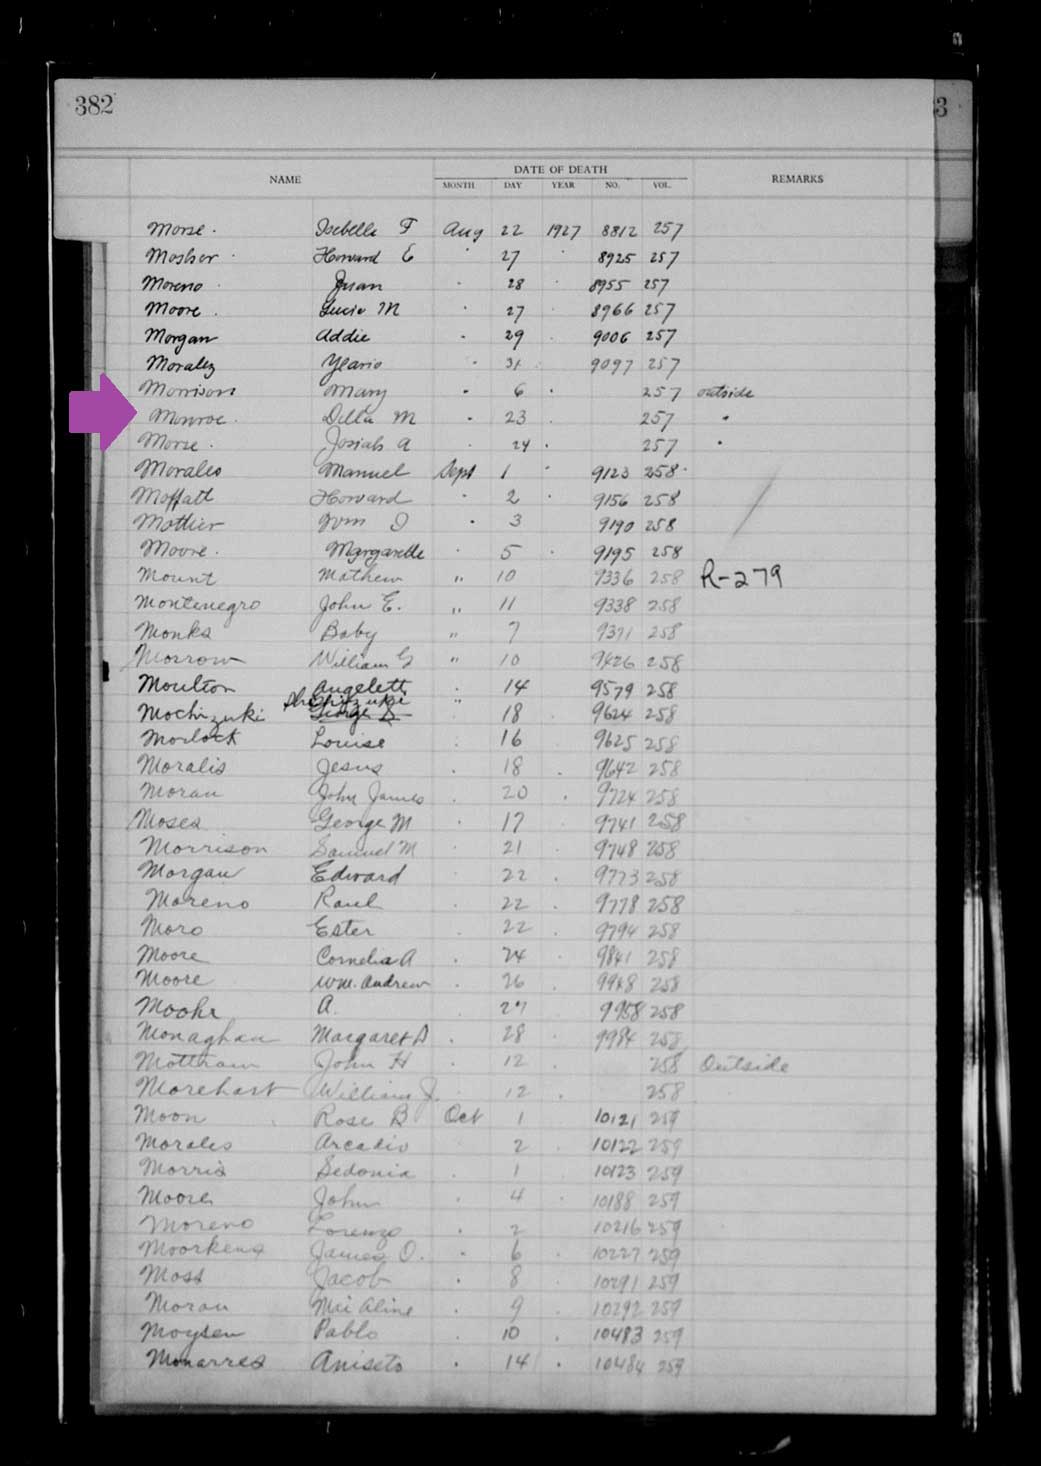 382
3
DATE OF DEATH
NAME MONTH DAY YEAR NO. VOL. REMARKS
Morse Isabelle F Aug 22 1927 8812 257
Mosher Howard E 27 8925 257
Moreno Juan 28 8955 257
Moore Lucie M 27 8966 257
Morgan Addie 29 9006 257
Moralez Ylario 31 9097 257
Morrison Mary 6 257 outside
Monroe Della M 23 257
Morse Josiah A 24 257
Morales Manuel Sept 1 9123 258
Moffatt Howard 2 9156 258
Mothier Wm 3 9190 258
Moore Margarette 5 9195 258
Mount Mathew " 10 9336 258 R-279
Montenegro John E. " 11 9338 258
Monks Baby " 7 9371 258
Morrow William G " 10 9426 258
Moulton Angelett 14 9579 258
Mochizuki George S 18 9624 258
Morlock Louise 16 9625 258
Moralis Jesus 18 9642 258
Moran John James 20 9724 258
Moses George M 17 9741 258
Morrison Samuel M 21 9748 258
Morgan Edward 22 9773 258
Moreno Raul 22 9778 258
Moro Ester 22 9794 258
Moore Cornelia A 24 9841 258
Moore Wm. Andrew 26 9948 258
Moohr A. 27 9958 258
Monaghan Margaret A 28 9984 258
Mottram John H 12 258 Outside
Morehart William J. 12 258
Moon Rose B Oct 1 10121 259
Morales Arcadio 2 10122 259
Morris Sedonia 1 10123 259
Moore John 4 10188 259
Moreno Lorenzo 2 10216 259
Moorkens James O. 6 10227 259
Moss Jacob 8 10291 259
Moran Mii Aline 9 10292 259
Moysen Pablo 10 10483 259
Monarres Aniseto 14 10484 259